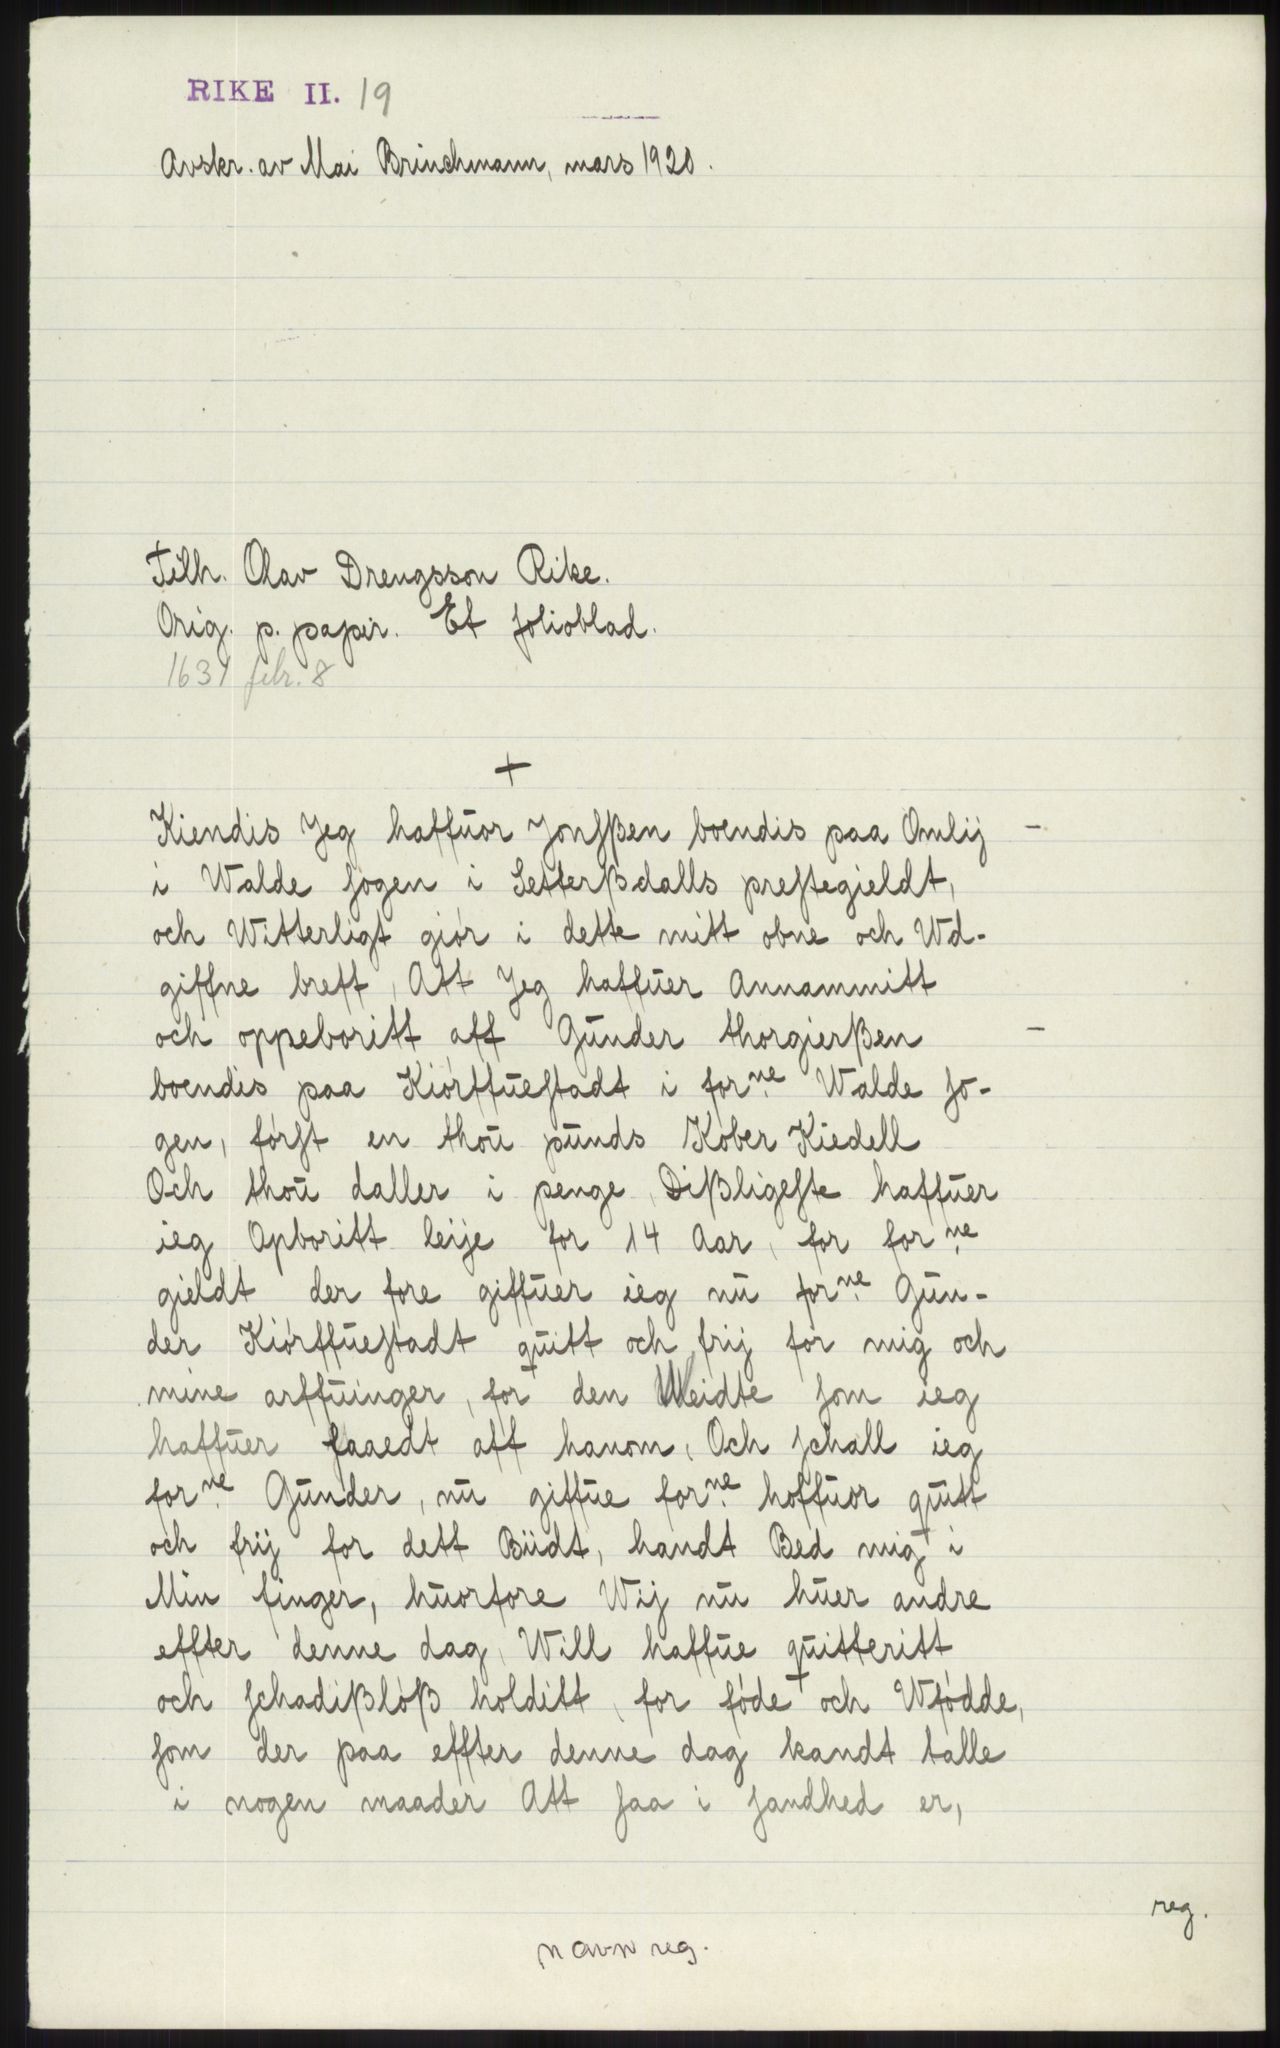 RIKE II. 19
Avskr. av Mai Brinchmann, mars 1920.
Tilh. Olav Drengsson Rike.
Orig. p. papir. Et folioblad.
1631 febr. 8
+
Kiendis Jeg haffuor Jonsßen boendis paa Omlij –
i Walde sogen i Setterßdalls prestegieldt,
och Witterligt giør i dette mitt obne och Wd-
giffne breff, Att Jeg haffuer Annammitt
och oppeboritt aff Gunder thorgierßen –
boendis paa Kiørffuestadt i forne Walde so-
gen, først en thou punds Kober Kiedell
Och thou daller i penge, Dißligeste haffuer
ieg Opboritt leije for 14 Aar, for forne
gieldt der fore giffuer ieg nu forne Gun-
der Kiørffuestadt quitt och frij for mig och
mine arffuinger, for den Meidte som ieg
haffuer faaedt aff hanom, Och schall ieg
forne Gunder, nu giffue forne hoffuor quitt
och frij for dett Biidt, handt Bed mig i
Min finger, huorfore Wij nu huer andre
effter denne dag, Will haffue quitteritt
och schadißløß holditt, for føde och Wfødde,
som der paa effter denne dag kandt talle
i nogen maader Att saa i sandhed er,
reg.
navn reg.